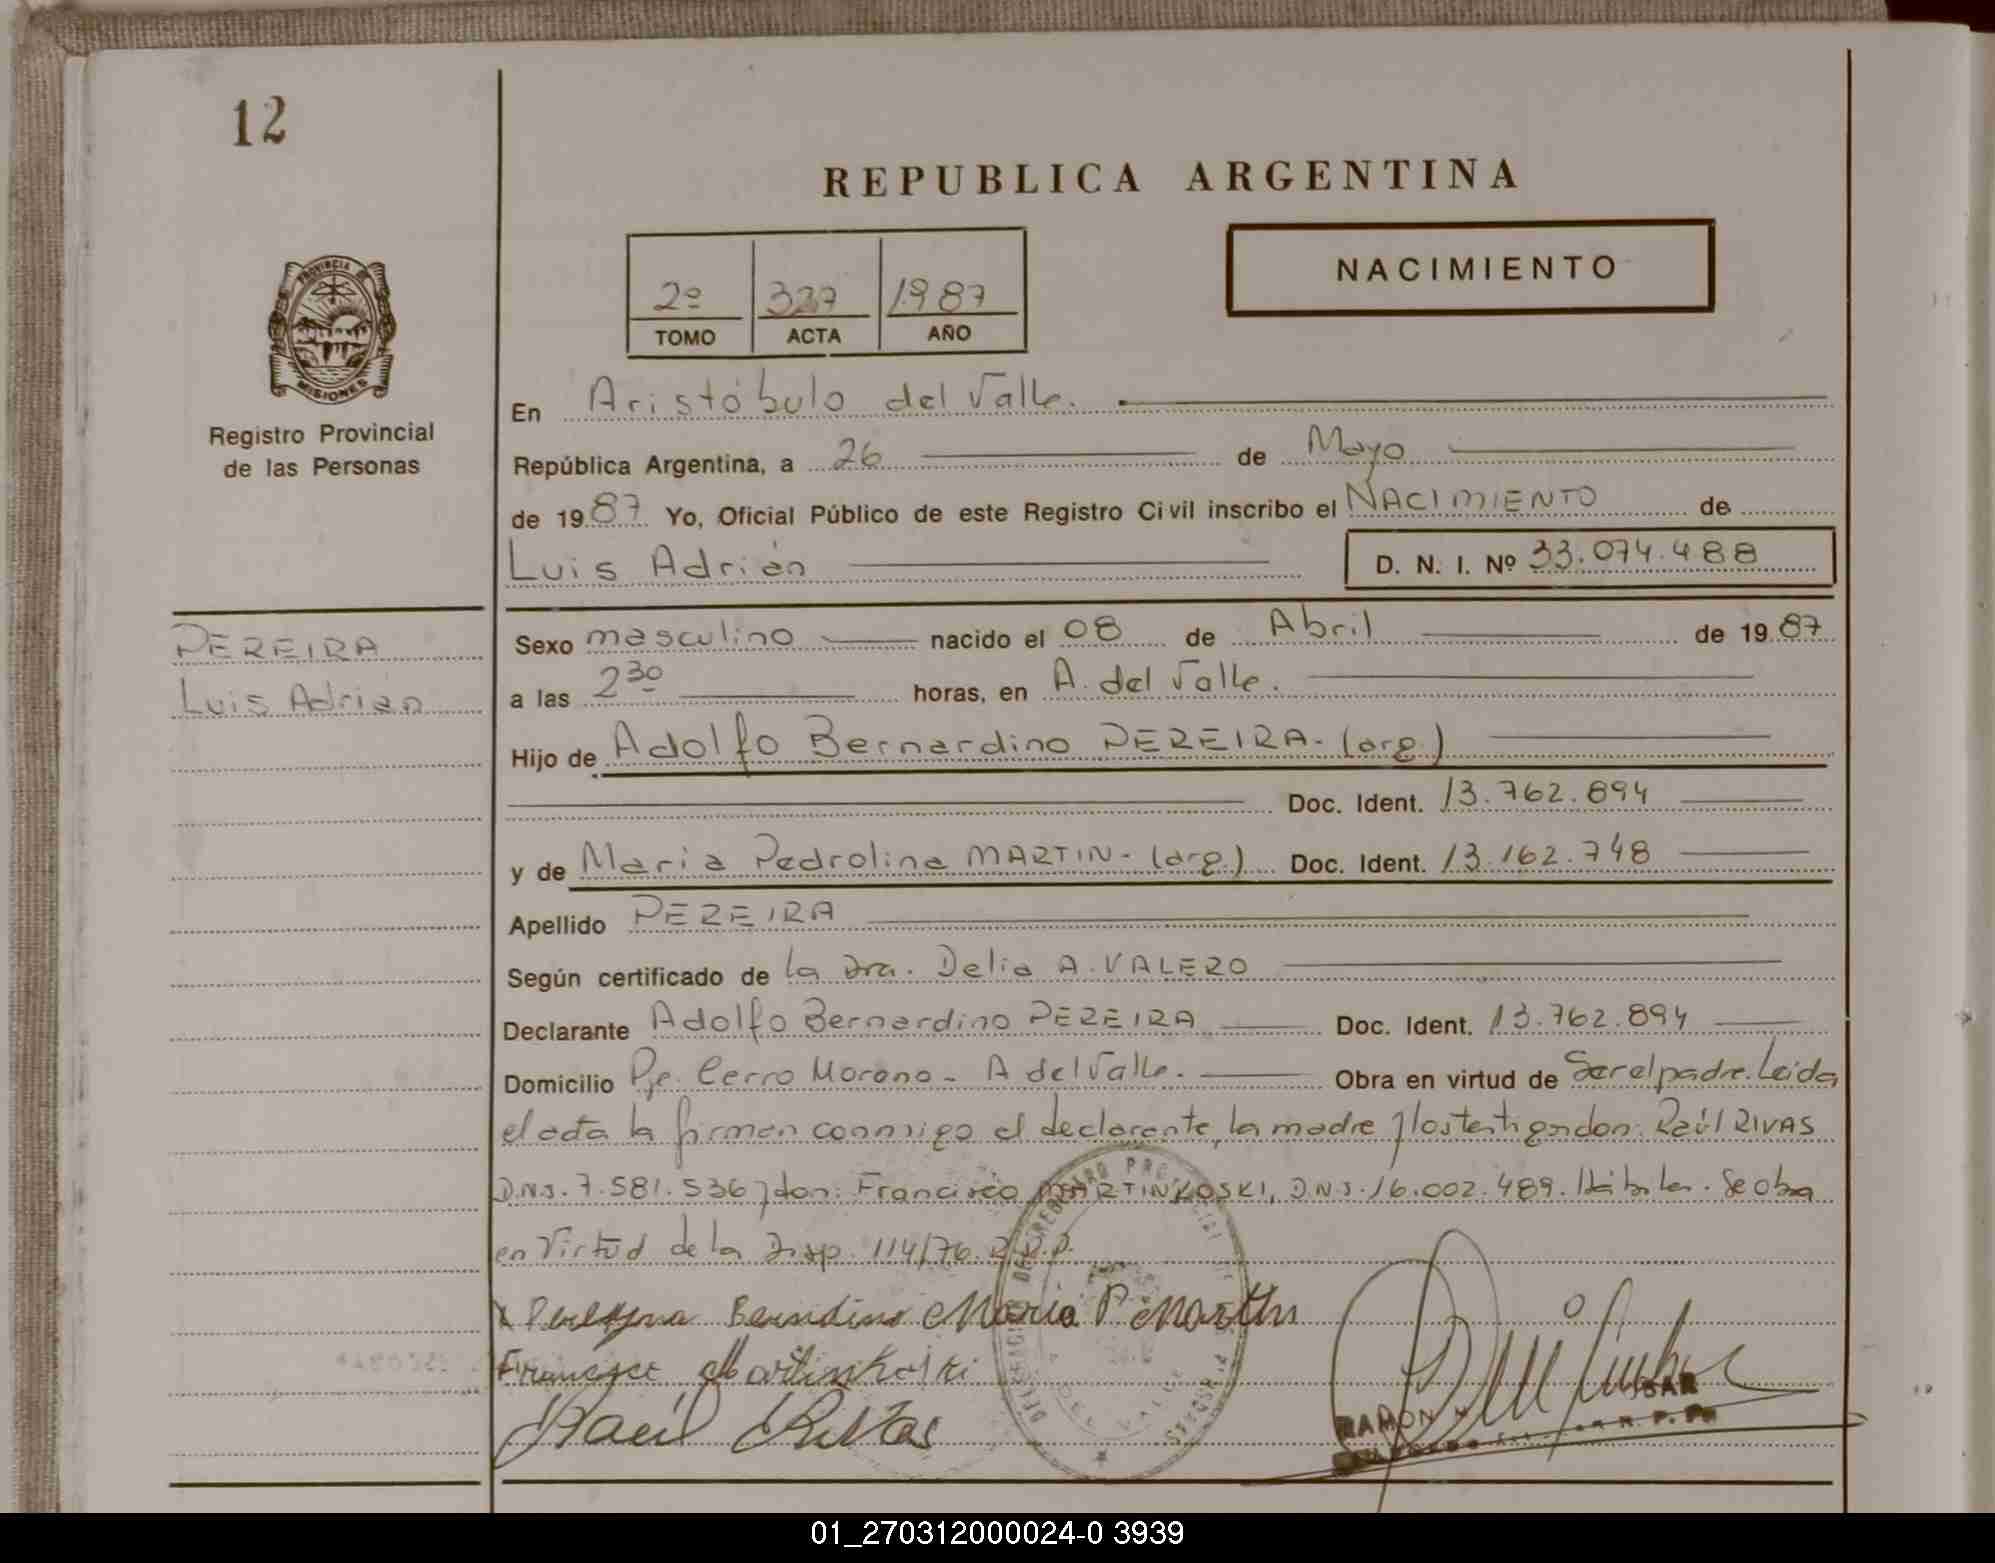 12
REPUBLICA ARGENTINA
NACIMIENTO
2º 327 1987
TOMO ACTA AÑO
PROVINCIA DE
MISIONES
Registro Provincial
de las Personas
En Aristóbulo del Valle.
República Argentina, a 26 de Mayo
de 1987 Yo, Oficial Público de este Registro Civil inscribo el NACIMIENTO de
Luis Adrián D. N. I. Nº 33.074.488
PEREIRA
Luis Adrian
Sexo masculino nacido el 08 de Abril de 1987
a las 2 30 horas, en A. del Valle.
Hijo de Adolfo Bernardino PEREIRA- (arg.)
Doc. Ident. 13.762.894
y de Maria Pedrolina MARTIN- (arg.) Doc. Ident. 13.162.748
Apellido PEREIRA
Según certificado de la Dra. Delia A. VALERO
Declarante Adolfo Bernardino PEREIRA Doc. Ident. 13.762.894
Domicilio Pje. Cerro Morono - A del Valle. Obra en virtud de Ser el padre. Leida
el acta la firman conmigo el declarante, la madre y los testigos don: Raúl RIVAS
D.N.I. 7.581.536 y don: Francisco MARTINKOSKI, D.N.I. 16.002.489. Hábiles. Se obra
en Virtud de la Disp. 114/76. R.P.P.
Bernardino Maria P Martin
Francisco Martinkoski
Raúl Rivas
RAMON
01_270312000024-0 3939